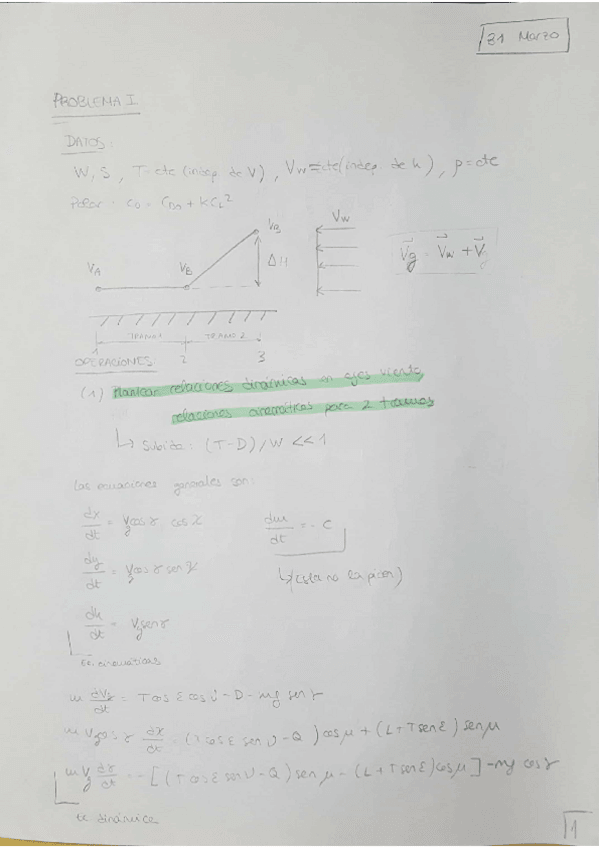 31 Marzo
PROBLEMA I
DATOS:
W, S, T=cte (indep. de V), Vw=cte(indep de h), ρ=cte
Polar = CD = CD0 + kCL²
VA VB VB ΔH Vw
V⃗g = V⃗w + V⃗
TRAMO 1 TRAMO 2
1 2 3
OPERACIONES:
(1) Plantear relaciones dinámicas en ejes viento,
relaciones cinemáticas para 2 tramos
↳ Subida: (T-D)/W << 1
Las ecuaciones generales son:
dx/dt = Vg cos γ cos χ
dm/dt = - C
dy/dt = Vg cos γ sen χ
dh/dt = Vg sen γ
Ec. cinemáticas
m dVg/dt = T cos ε cos ν - D - mg sen γ
m Vg cos γ dχ/dt = (T cos ε sen ν - Q) cos μ + (L + T sen ε) sen μ
m Vg dγ/dt = - [(T cos ε sen ν - Q) sen μ - (L + T sen ε) cos μ] - mg cos γ
Ec dinámica
1